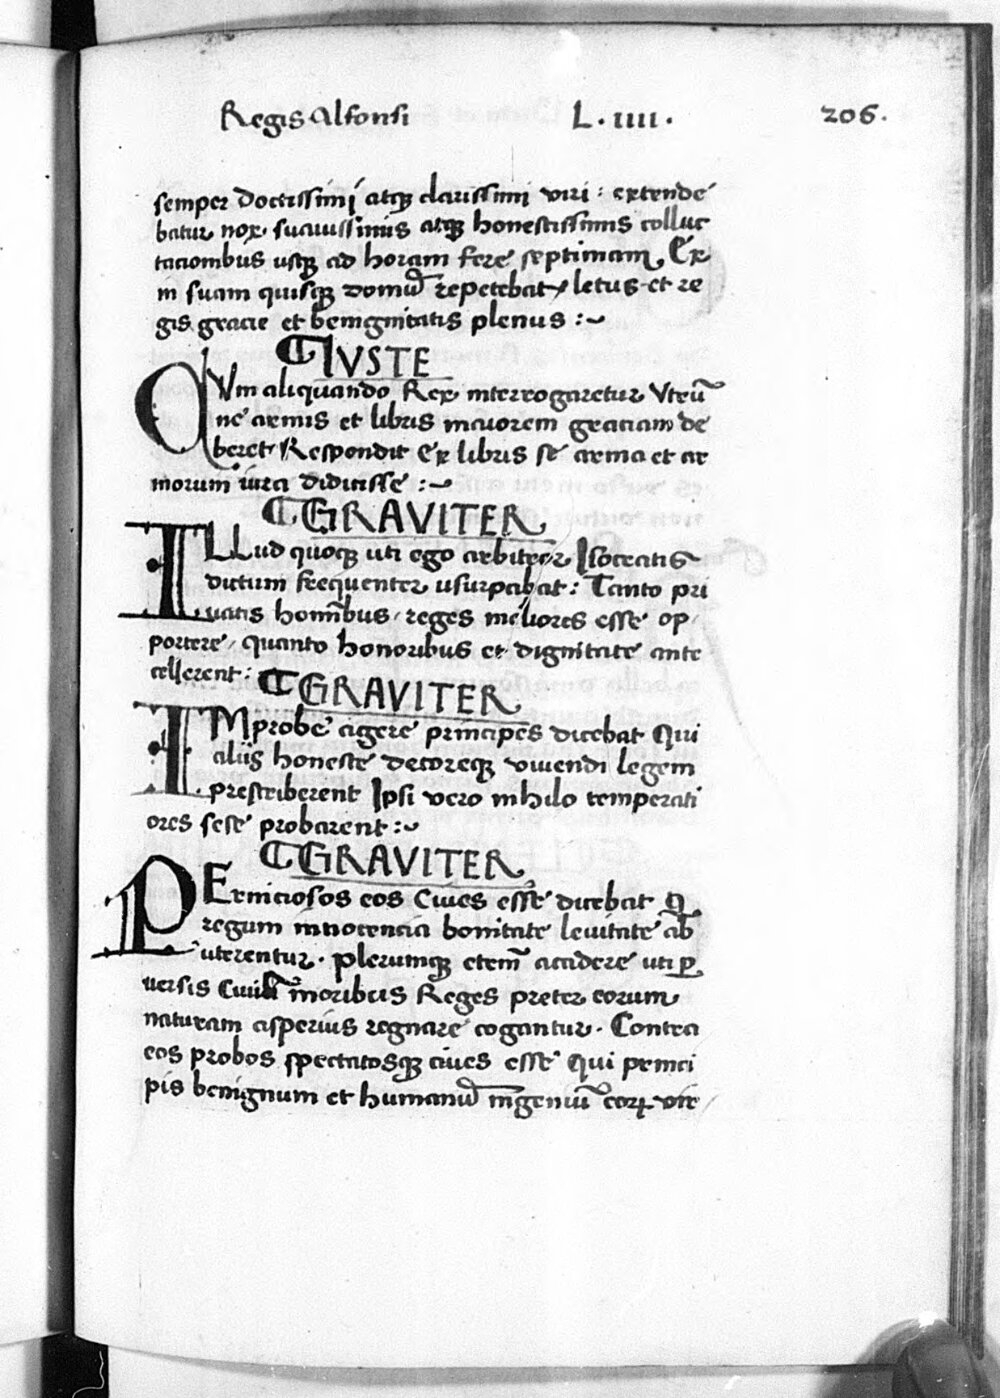 Regis Alfonsi L. IIII. 206.
semper doctissimi atq̃ clarissimi viri : extende
batur nox suauissimis atq̃ honestissimis colluc
tacionibus usq̃ ad horam fere septimam. Ex
in suam quisq̃ domũ repetebat / letus et re
gis gracie et benignitatis plenus :~
IVSTE
CVm aliquando Rex interrogaretur Vtrũ
ne armis et libris maiorem graciam de
beret Respondit Ex libris se arma et ar
morum iura didicisse :~
GRAVITER
ILLud quoq̃ uti ego arbitror Isocratis
dictum frequenter usurpabat : Tanto pri
uatis hominibus / reges meliores esse op
portere / quanto honoribus et dignitate ante
cellerent :
GRAVITER
IMprobe agere principes dicebat Qui
aliis honeste decoreq̃ viuendi legem
prescriberent Ipsi vero nihilo temperati
ores sese probarent :~
GRAVITER
PErniciosos eos Ciues esse dicebat q̃
regum innocencia bonitate leuitate ab
uterentur . plerumq̃ etem̃ accidere uti ꝑ
uersis Ciuiũ moribus Reges preter eorum
naturam asperius regnare cogantur . Contra
eos probos spectatosq̃ ciues esse Qui princi
pis benignum et humanũ ingeniũ eoꝝ